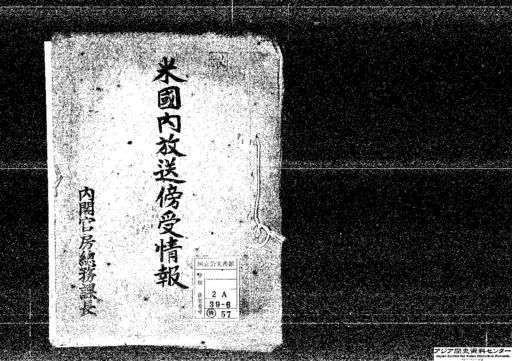 米國内放送傍受情報
内閣官房總務課長
国立公文書館
2A
39-6
57
アジア歴史資料センター
Japan Center for Asian Historical Records